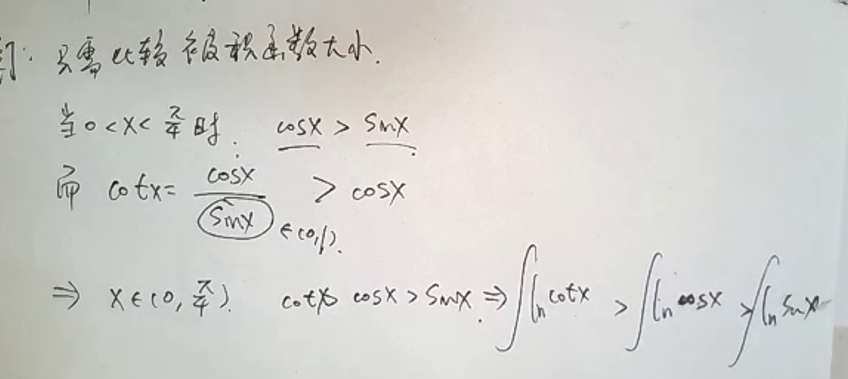 只需比较被积函数大小.
当 0<x<π/4 时. cosx > sinx.
而 cotx = cosx/sinx > cosx
∈(0,1).
⇒ x∈(0,π/4). cotx> cosx > sinx. ⇒ ∫ln cotx > ∫ln cosx > ∫ln sinx